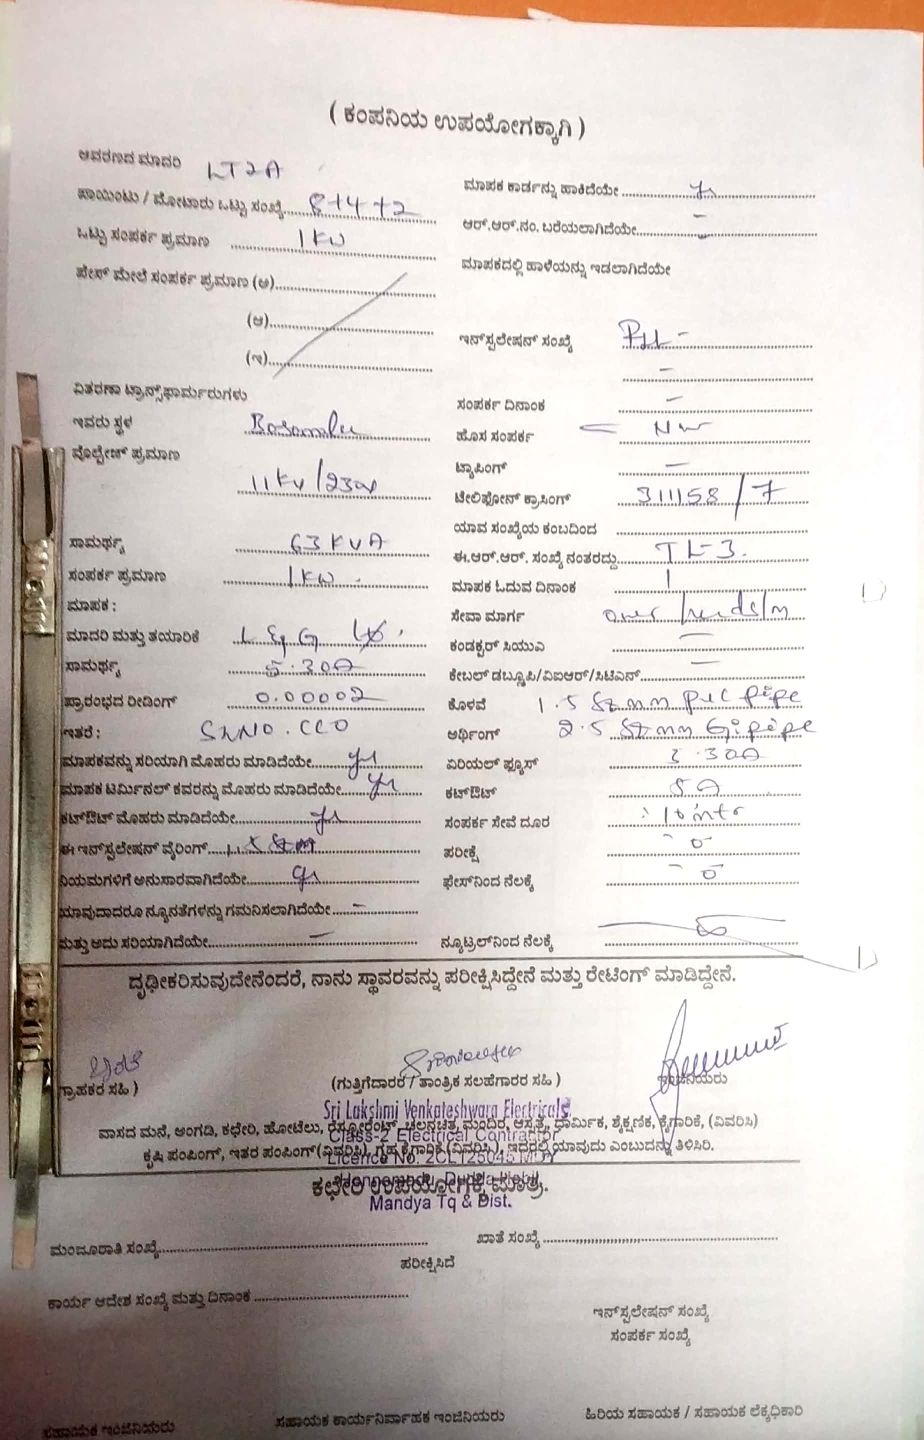 ( ಕಂಪನಿಯ ಉಪಯೋಗಕ್ಕಾಗಿ )
ಆವರಣದ ಮಾದರಿ LT2A
ಮಾಪಕ ಕಾರ್ಡನ್ನು ಹಾಕಿದೆಯೇ
ಪಾಯಿಂಟು / ಮೋಟಾರು ಒಟ್ಟು ಸಂಖ್ಯೆ 8+4+2
ಆರ್.ಆರ್.ನಂ. ಬರೆಯಲಾಗಿದೆಯೇ –
ಒಟ್ಟು ಸಂಪರ್ಕ ಪ್ರಮಾಣ 1KW
ಮಾಪಕದಲ್ಲಿ ಹಾಳೆಯನ್ನು ಇಡಲಾಗಿದೆಯೇ
ಪೇಸ್ ಮೇಲೆ ಸಂಪರ್ಕ ಪ್ರಮಾಣ (ಅ)
(ಆ)
(ಇ)
ಇನ್‌ಸ್ಪಲೇಷನ್ ಸಂಖ್ಯೆ
ವಿತರಣಾ ಟ್ರಾನ್ಸ್‌ಫಾರ್ಮರುಗಳು
ಸಂಪರ್ಕ ದಿನಾಂಕ –
ಇವರು ಸ್ಥಳ
ಹೊಸ ಸಂಪರ್ಕ
ವೊಲ್ಟೇಜ್ ಪ್ರಮಾಣ 11KV/230V
ಟ್ಯಾಪಿಂಗ್ –
ಟೇಲಿಫೋನ್ ಕ್ರಾಸಿಂಗ್ 311158/7
ಯಾವ ಸಂಖ್ಯೆಯ ಕಂಬದಿಂದ
ಸಾಮರ್ಥ್ಯ 63 KVA
ಈ.ಆರ್.ಆರ್. ಸಂಖ್ಯೆ ನಂತರದ್ದು TL-3.
ಸಂಪರ್ಕ ಪ್ರಮಾಣ 1KW.
ಮಾಪಕ ಓದುವ ದಿನಾಂಕ
ಮಾಪಕ :
ಸೇವಾ ಮಾರ್ಗ over
ಮಾದರಿ ಮತ್ತು ತಯಾರಿಕೆ
ಕಂಡಕ್ಟರ್ ಸಿಯುಎ –
ಸಾಮರ್ಥ್ಯ 5.30A
ಕೇಬಲ್ ಡಬ್ಲೂಪಿ/ವಿಐಆರ್/ಸಿಟಿಎನ್ –
ಪ್ರಾರಂಭದ ರೀಡಿಂಗ್ 0.00002
ಕೊಳವೆ 1.5 Sqmm pvc pipe
ಇತರೆ :
ಅರ್ಥಿಂಗ್ 2.5 Sqmm Gi pipe
ಮಾಪಕವನ್ನು ಸರಿಯಾಗಿ ಮೊಹರು ಮಾಡಿದೆಯೇ
ಏರಿಯಲ್ ಫ್ಯೂಸ್
ಮಾಪಕ ಟರ್ಮಿನಲ್ ಕವರನ್ನು ಮೊಹರು ಮಾಡಿದೆಯೇ
ಕಟ್‌ಔಟ್ 5A
ಕಟ್‌ಔಟ್ ಮೊಹರು ಮಾಡಿದೆಯೇ
ಸಂಪರ್ಕ ಸೇವೆ ದೂರ 10 mtr
ಈ ಇನ್‌ಸ್ಪಲೇಷನ್ ವೈರಿಂಗ್ 1.5 Sqm
ಪರೀಕ್ಷೆ
ನಿಯಮಗಳಿಗೆ ಅನುಸಾರವಾಗಿದೆಯೇ
ಫೇಸ್‌ನಿಂದ ನೆಲಕ್ಕೆ
ಯಾವುದಾದರೂ ನ್ಯೂನತೆಗಳನ್ನು ಗಮನಿಸಲಾಗಿದೆಯೇ –
ಮತ್ತು ಅದು ಸರಿಯಾಗಿದೆಯೇ –
ನ್ಯೂಟ್ರಲ್‌ನಿಂದ ನೆಲಕ್ಕೆ
ದೃಢೀಕರಿಸುವುದೇನೆಂದರೆ, ನಾನು ಸ್ಥಾವರವನ್ನು ಪರೀಕ್ಷಿಸಿದ್ದೇನೆ ಮತ್ತು ರೇಟಿಂಗ್ ಮಾಡಿದ್ದೇನೆ.
ಗ್ರಾಹಕರ ಸಹಿ )
(ಗುತ್ತಿಗೆದಾರರ / ತಾಂತ್ರಿಕ ಸಲಹೆಗಾರರ ಸಹಿ )
ಇಂಜಿನಿಯರು
Sri Lakshmi Venkateshwara Electricals
ವಾಸದ ಮನೆ, ಅಂಗಡಿ, ಕಛೇರಿ, ಹೋಟೆಲು, ರೆಸ್ಟೋರೆಂಟ್, ಚಲನಚಿತ್ರ, ಮಂದಿರ, ಆಸ್ಪತ್ರೆ, ಧಾರ್ಮಿಕ, ಶೈಕ್ಷಣಿಕ, ಕೈಗಾರಿಕೆ, (ವಿವರಿಸಿ)
Class-2 Electrical Contractor
ಕೃಷಿ ಪಂಪಿಂಗ್, ಇತರ ಪಂಪಿಂಗ್ (ವಿವರಿಸಿ), ಗೃಹ ಕೈಗಾರಿಕೆ (ವಿವರಿಸಿ), ಇದರಲ್ಲಿ ಯಾವುದು ಎಂಬುದನ್ನು ತಿಳಿಸಿರಿ.
Licence No.
ಕಛೇರಿ ಉಪಯೋಗಕ್ಕೆ ಮಾತ್ರ.
Mandya Tq & Dist.
ಮಂಜೂರಾತಿ ಸಂಖ್ಯೆ
ಖಾತೆ ಸಂಖ್ಯೆ
ಪರೀಕ್ಷಿಸಿದೆ
ಕಾರ್ಯ ಆದೇಶ ಸಂಖ್ಯೆ ಮತ್ತು ದಿನಾಂಕ
ಇನ್‌ಸ್ಪಲೇಷನ್ ಸಂಖ್ಯೆ
ಸಂಪರ್ಕ ಸಂಖ್ಯೆ
ಸಹಾಯಕ ಇಂಜಿನಿಯರು
ಸಹಾಯಕ ಕಾರ್ಯನಿರ್ವಾಹಕ ಇಂಜಿನಿಯರು
ಹಿರಿಯ ಸಹಾಯಕ / ಸಹಾಯಕ ಲೆಕ್ಕಧಿಕಾರಿ